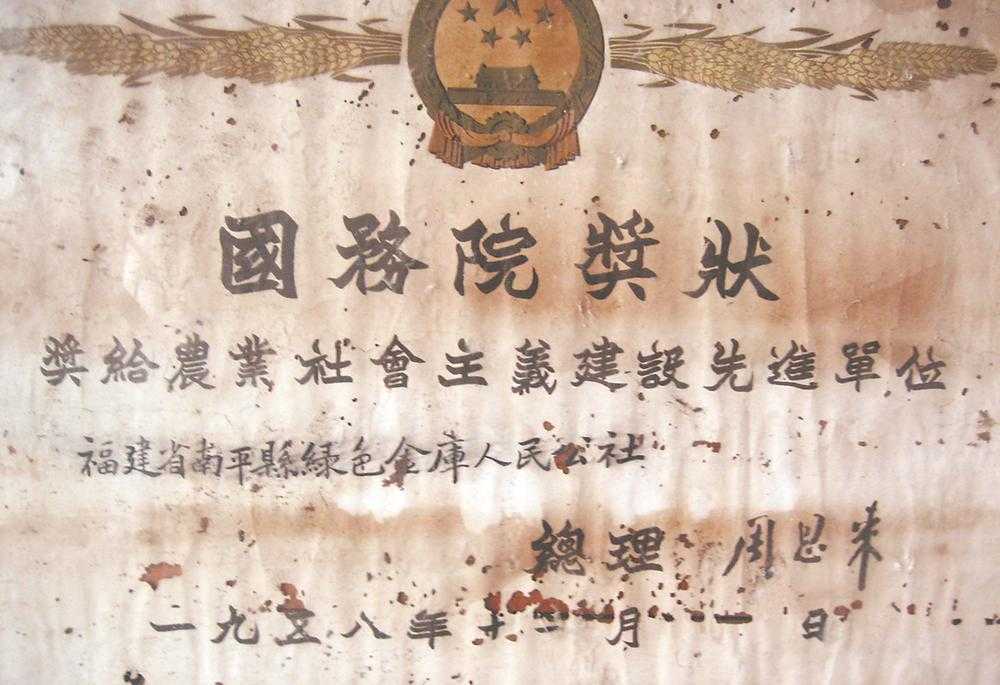 國務院獎狀
獎給農業社會主義建設先進單位
福建省南平縣綠色金庫人民公社
總理 周恩來
一九五八年十二月 一日